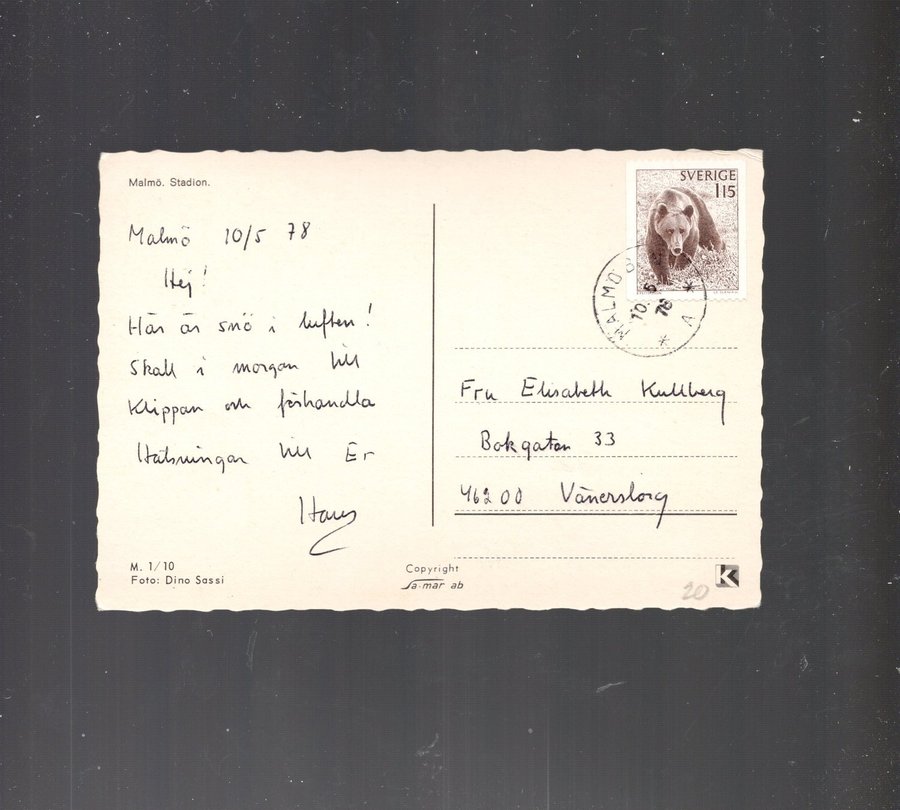 Malmö. Stadion.
Malmö 10/5 78
Hej!
Här är snö i luften!
Skall i morgon till
Klippan och förhandla
Hälsningar till Er
Hans
M. 1/10
Foto: Dino Sassi
Copyright
Sa-mar ab
SVERIGE
115
MALMÖ
10. 5
78
* A *
Fru Elisabeth Kullberg
Bokgatan 33
462 00 Vänersborg
20
K